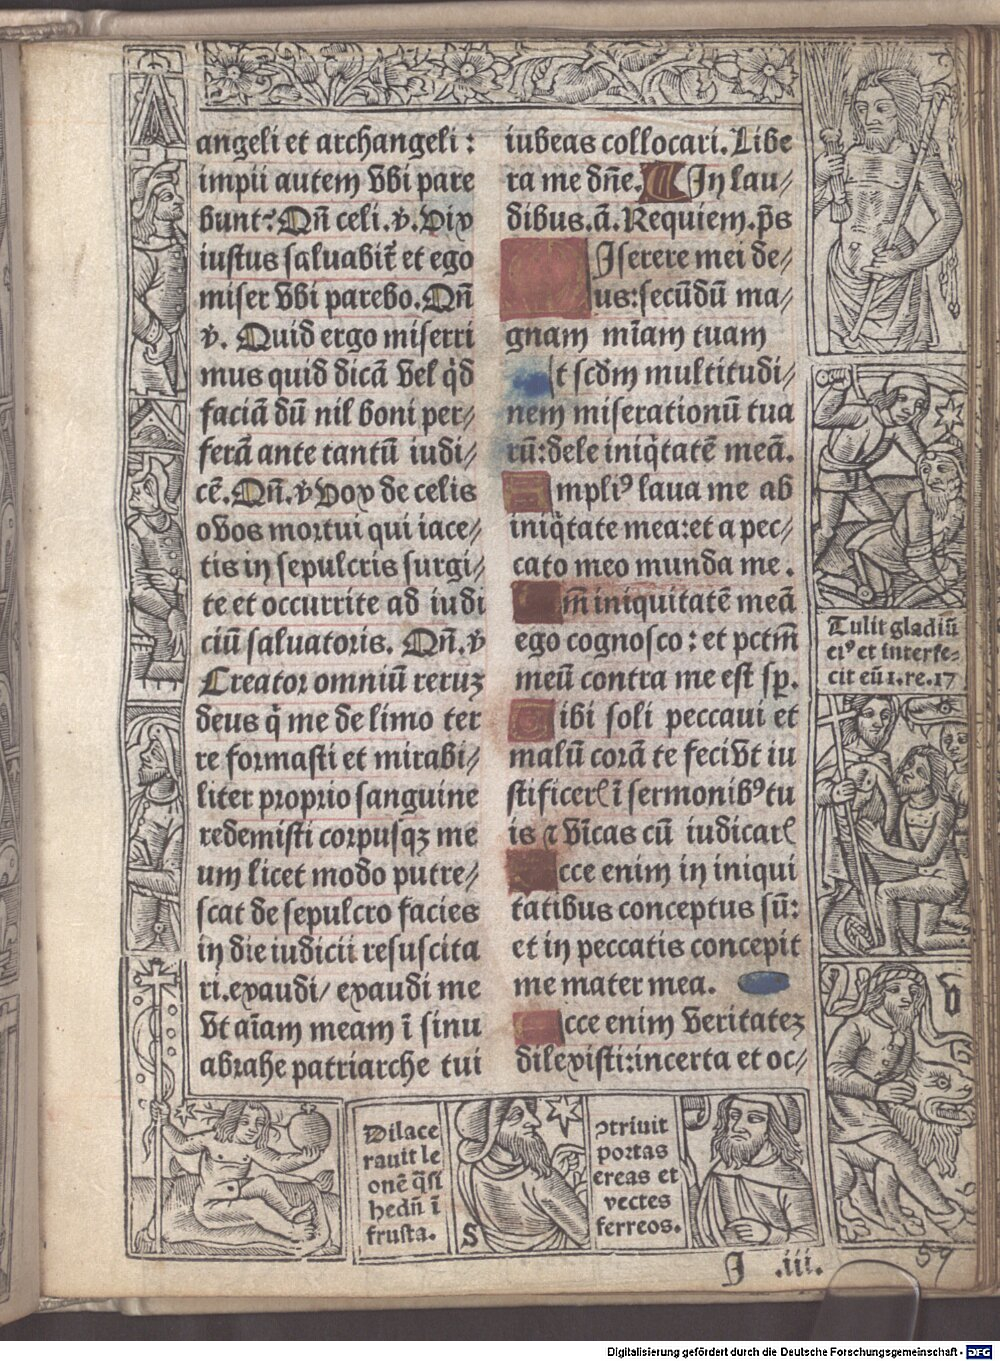 angeli et archangeli :
impii autem vbi pare
bunt? Qñ celi. ꝟ. Vix
iustus saluabit̃ et ego
miser vbi parebo. Qñ
ꝟ. Quid ergo miserri
mus quid dicã vel qͥd
faciã dũ nil boni per⸗
ferã ante tantũ iudi⸗
cẽ. Qñ. ꝟ Vox de celis
o vos mortui qui iace⸗
tis in sepulcris surgi⸗
te et occurrite ad iudi
ciũ saluatoris. Qñ. ꝟ
Creator omniũ reruꝫ
deus qͥ me de limo ter
re formasti et mirabi⸗
liter proprio sanguine
redemisti corpusqꝫ me
um licet modo putre⸗
scat de sepulcro facies
in die iudicii resuscita
ri. exaudi/ exaudi me
vt aĩam meam ĩ sinu
abrahe patriarche tui
iubeas collocari. Libe
ra me dñe. In lau⸗
dibus. ã. Requiem. p̃s
Iserere mei de⸗
us: secũdũ ma⸗
gnam mĩam tuam
t scd̃m multitudi⸗
nem miserationũ tua
rũ: dele iniqͥtatẽ meã.
Ampliꝰ laua me ab
iniqͥtate mea: et a pec⸗
cato meo munda me.
m̃ iniquitatẽ meã
ego cognosco: et pctm̃
meũ contra me est sp̱.
Tibi soli peccaui et
malũ corã te feci vt iu
stificerꝭ ĩ sermonibꝰ tu
is ⁊ vĩcas cũ iudicarꝭ
cce enim in iniqui
tatibus conceptus sũ:
et in peccatis concepit
me mater mea.
Ecce enim veritateꝫ
dilexisti: incerta et oc⸗
Tulit gladiũ
eiꝰ et interfe⸗
cit eũ 1. re. 17
D
Dilace
rauit le
onẽ qͣsi
hedũ ĩ
frusta.
S
ꝯtriuit
portas
ereas et
vectes
ferreos.
I .iii.
59
Digitalisierung gefördert durch die Deutsche Forschungsgemeinschaft - DFG